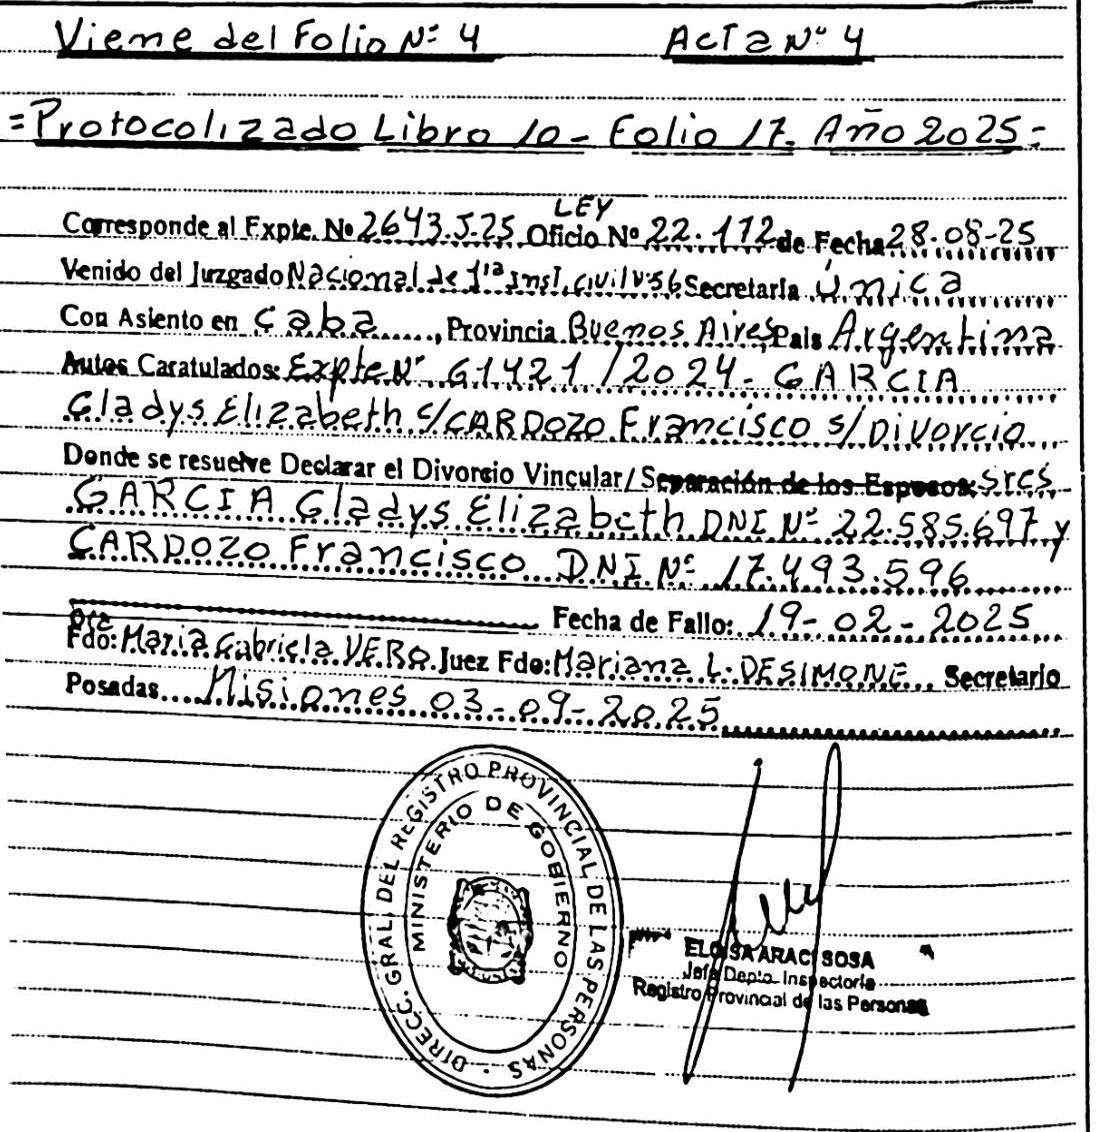 Viene del Folio Nº 4 Acta Nº 4
=Protocolizado Libro 10- Folio 17. Año 2025=
LEY
Corresponde al Expte. Nº 2643.J.25 Oficio Nº 22.172 de Fecha 28-08-25
Venido del Juzgado Nacional de 1ra Inst. civil Nº 56 Secretaría Única
Con Asiento en Caba...., Provincia Buenos Aires País Argentina
Autos Caratulados: Expte Nº 61421/2024- GARCIA
Gladys Elizabeth c/CARDOZO Francisco s/Divorcio...
Donde se resuelve Declarar el Divorcio Vincular/ Separación de los Esposos: sres
GARCIA Gladys Elizabeth DNI Nº 22.585.697 y
CARDOZO Francisco DNI Nº 17.493.596
Fecha de Fallo: 19-02-2025
Dra
Fdo: Maria Gabriela VERO. Juez Fdo: Mariana L. DESIMONE... Secretario
Posadas.... Misiones 03-09-2025
DIRECC. GRAL. DEL REGISTRO PROVINCIAL DE LAS PERSONAS -
MINISTERIO DE GOBIERNO
ELOISA ARACI SOSA
Jefa Depto. Inspectoría
Registro Provincial de las Personas